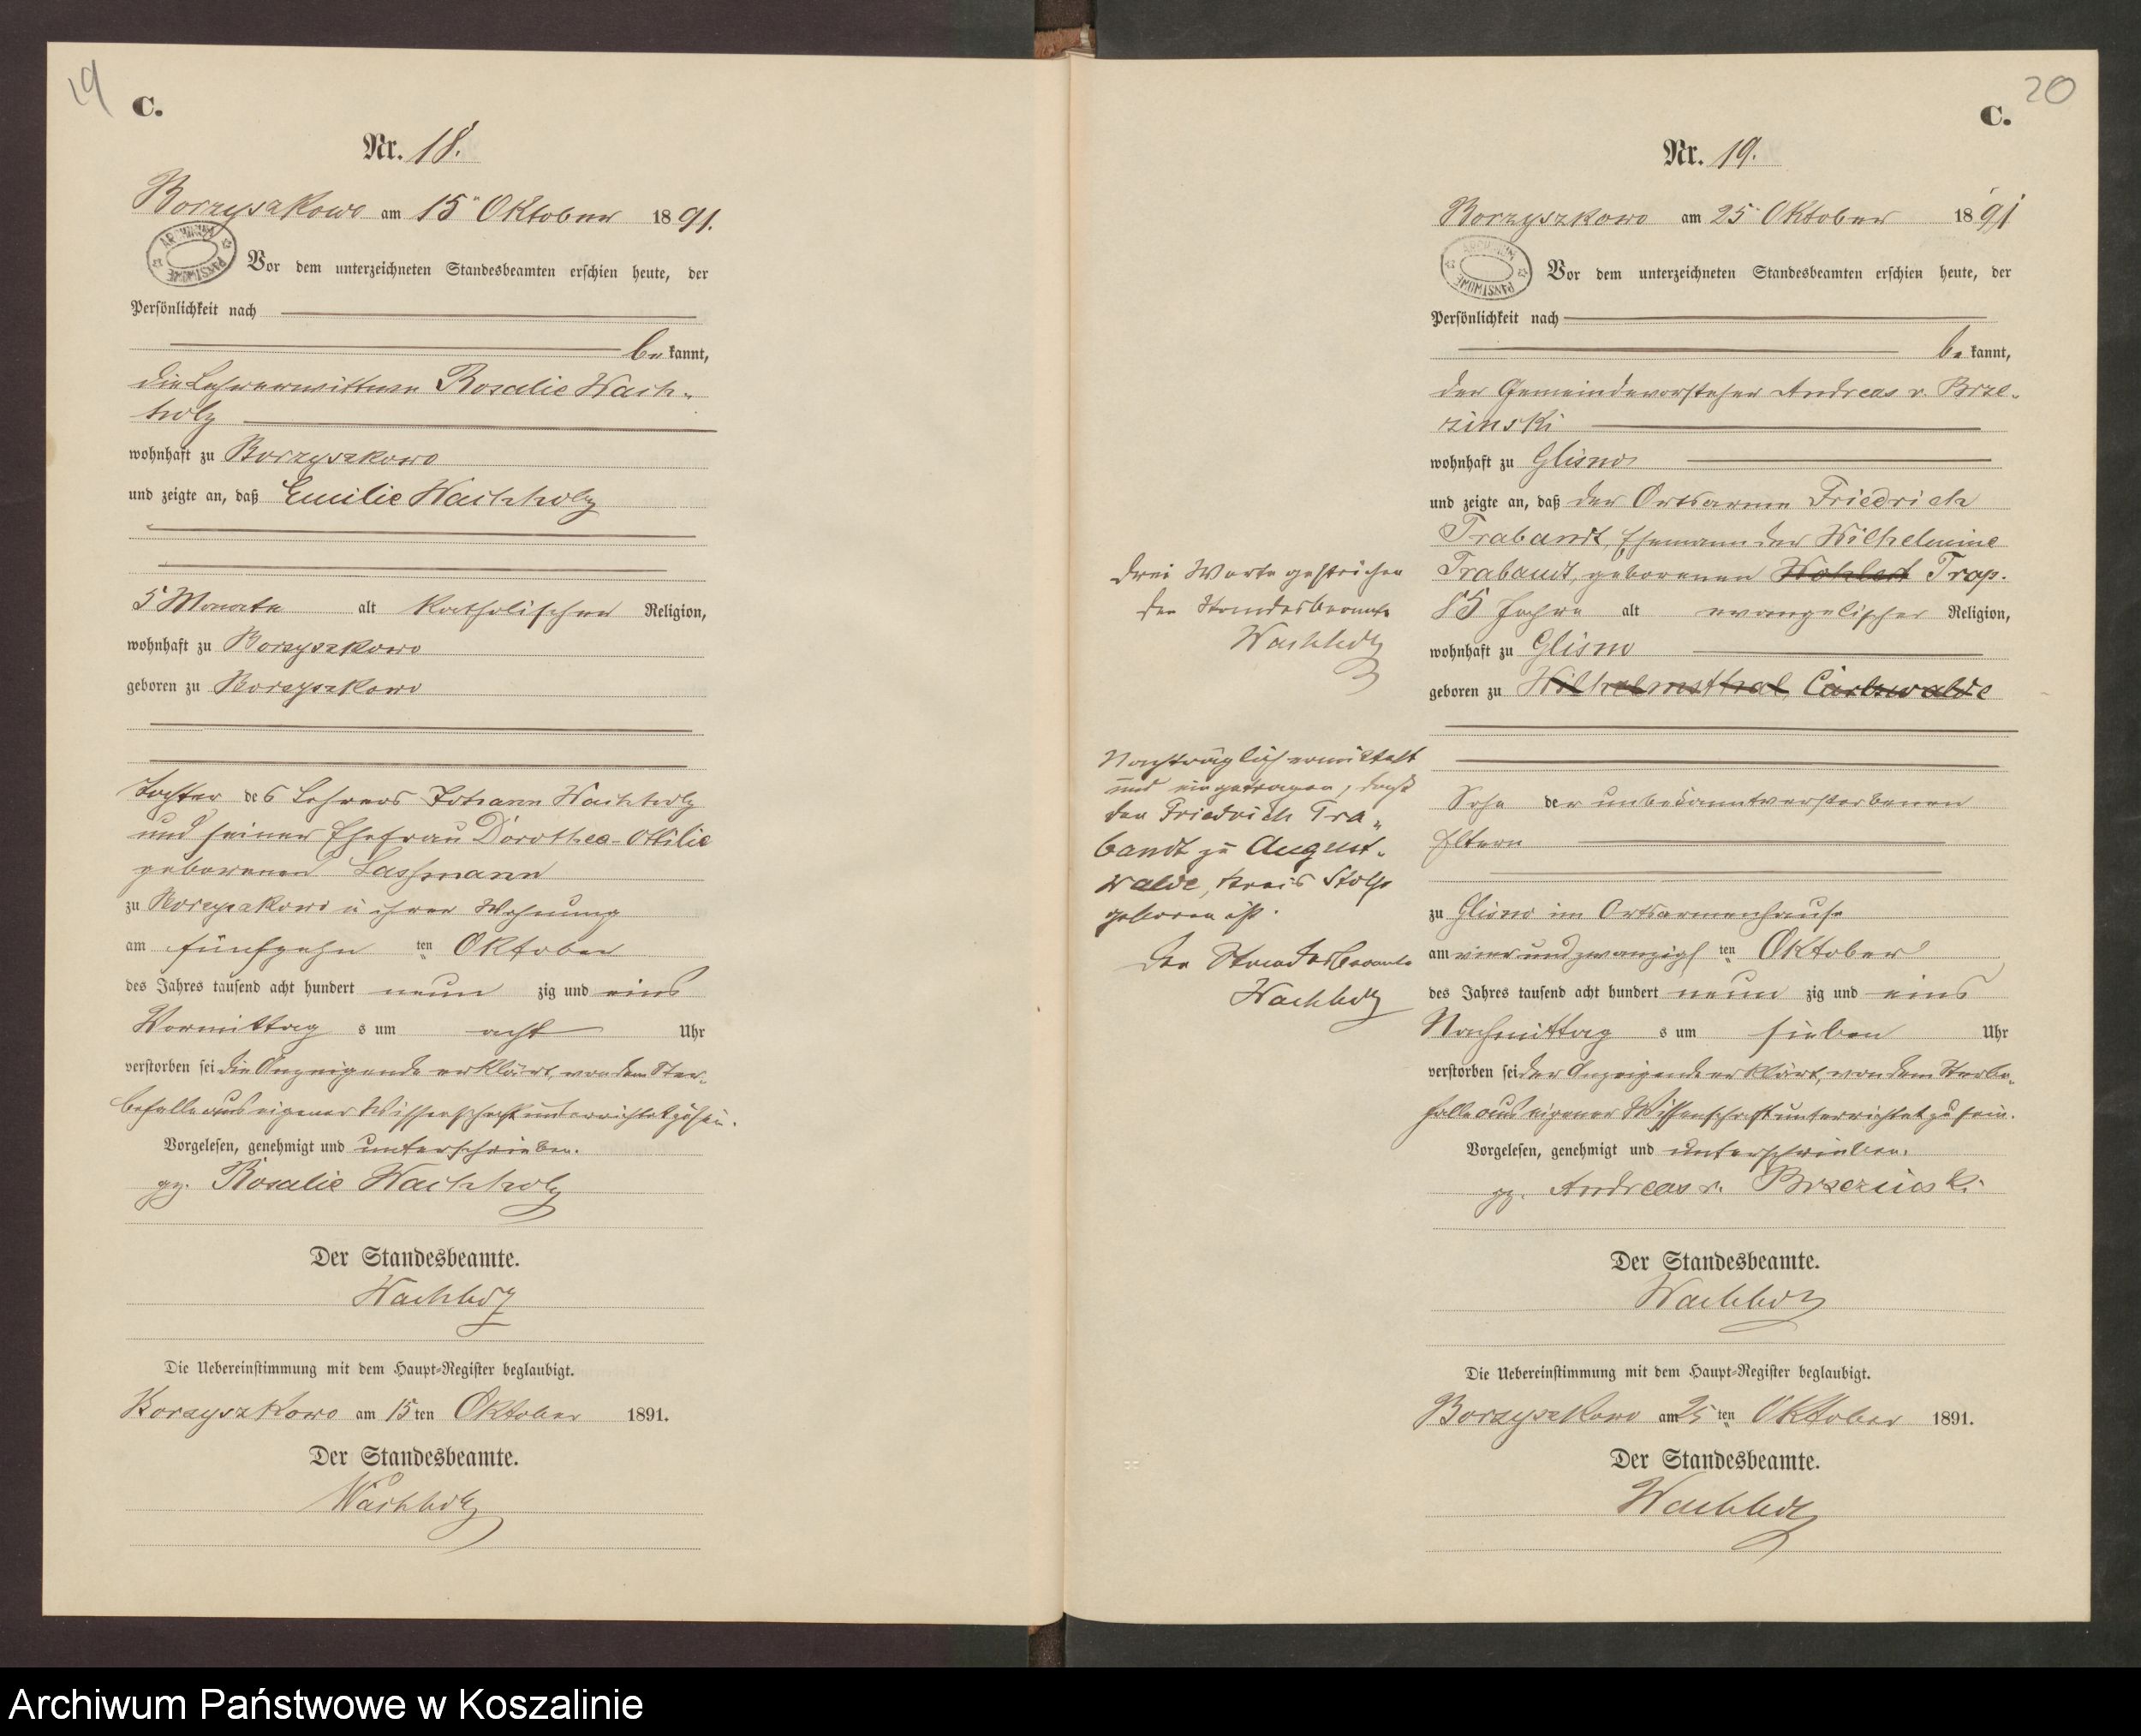 19
C.
Nr. 18.
Borzyszkowo am 15ten Oktober 1891.
ARCHIWUM PAŃSTWOWE
Vor dem unterzeichneten Standesbeamten erschien heute, der
Persönlichkeit nach
be kannt,
die Lehrerwittwe Rosalie Wach-
holz
wohnhaft zu Borzyszkowo
und zeigte an, daß Emilie Wachholz
5 Monate alt katholischer Religion,
wohnhaft zu Borzyszkowo
geboren zu Borzyszkowo
Tochter des Lehrers Johann Wachholz
und seiner Ehefrau Dorothea-Ottilie
geborenen Lassmann
zu Borzyszkowo in ihrer Wohnung
am fünfzehn ten Oktober
des Jahres tausend acht hundert neun zig und eins
Vormittag s um acht Uhr
verstorben sei die Anzeigende erklärt, von dem Ster-
befalle aus eigener Wissenschaft unterrichtet zu sein.
Vorgelesen, genehmigt und unterschrieben.
gz. Rosalie Wachholz
Der Standesbeamte.
Wachholz
Die Uebereinstimmung mit dem Haupt-Register beglaubigt.
Borzyszkowo am 15 ten Oktober 1891.
Der Standesbeamte.
Wachholz
20
C.
Nr. 19.
Borzyszkowo am 25 Oktober 1891
ARCHIWUM PAŃSTWOWE
Vor dem unterzeichneten Standesbeamten erschien heute, der
Persönlichkeit nach
be kannt,
der Gemeindevorsteher Andreas v. Brze-
zinski
wohnhaft zu Glisno
und zeigte an, daß der Ortsarme Friedrich
Trabandt, Ehemann der Wilhelmine
Trabandt, geborenen Trap.
85 Jahre alt evangelischer Religion,
wohnhaft zu Glisno
geboren zu Wilhelmsthal, Carlswalde
Sohn der unbekannt verstorbenen
Eltern
zu Glisno im Ortsarmenhause
am vier und zwanzigs ten Oktober
des Jahres tausend acht hundert neun zig und eins
Nachmittag s um sieben Uhr
verstorben sei der Anzeigende erklärt, von dem Sterbe-
falle aus eigener Wissenschaft unterrichtet zu sein.
Vorgelesen, genehmigt und unterschrieben.
gz. Andreas v. Brzezinski
Der Standesbeamte.
Wachholz
Die Uebereinstimmung mit dem Haupt-Register beglaubigt.
Borzyszkowo am 25 ten Oktober 1891.
Der Standesbeamte.
Wachholz
Drei Worte gestrichen
Der Standesbeamte
Wachholz
Nachträglich ermittelt
und eingetragen, daß
der Friedrich Tra-
bandt zu August-
walde, Kreis Stolp
geboren ist.
Der Standesbeamte
Wachholz
Archiwum Państwowe w Koszalinie